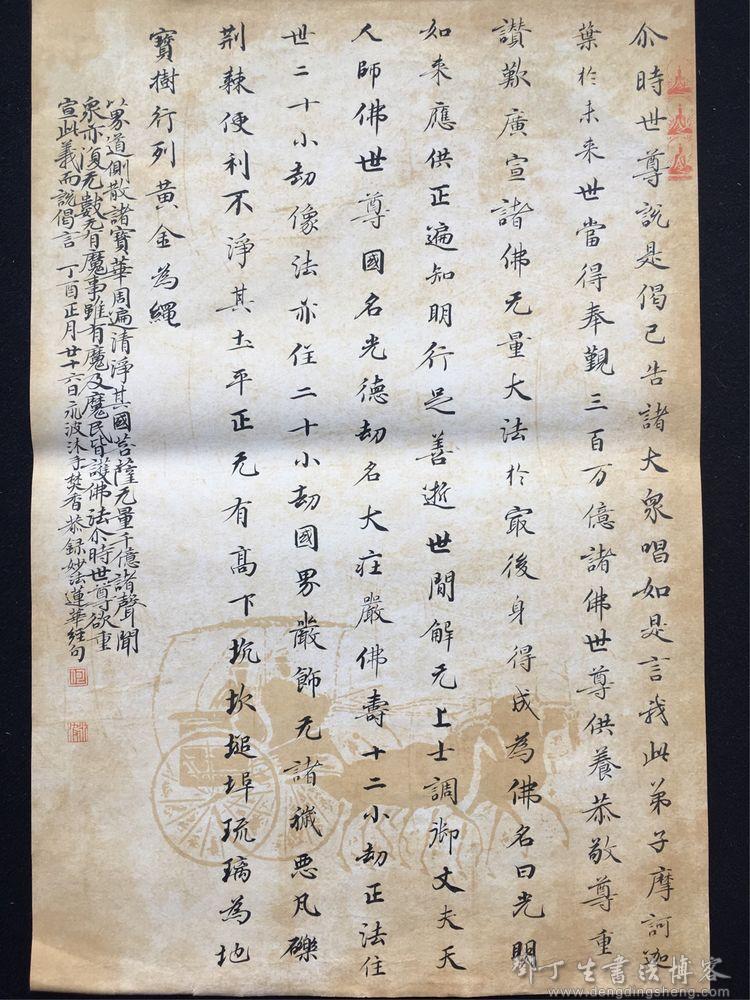 尒時世尊說是偈已告諸大衆唱如是言我此弟子摩訶迦
葉於未来世當得奉覲三百万億諸佛世尊供養恭敬尊重
讚歎廣宣諸佛无量大法於最後身得成為佛名曰光明
如来應供正遍知明行足善逝世間解无上士調御丈夫天
人師佛世尊國名光德劫名大莊嚴佛壽十二小劫正法住
世二十小劫像法亦住二十小劫國界嚴飾无諸穢惡凡礫
荆棘便利不淨其土平正无有高下坑坎塠埠琉璃為地
寶樹行列黃金為繩
以界道側散諸寶華周遍清淨其國菩薩无量千億諸聲聞
衆亦復无數无有魔事雖有魔及魔民皆護佛法尒時世尊欲重
宣此義而說偈言 丁酉正月廿十六日永波沐手焚香恭録妙法蓮華經句
丁生書法博客
www.dengdingsheng.com